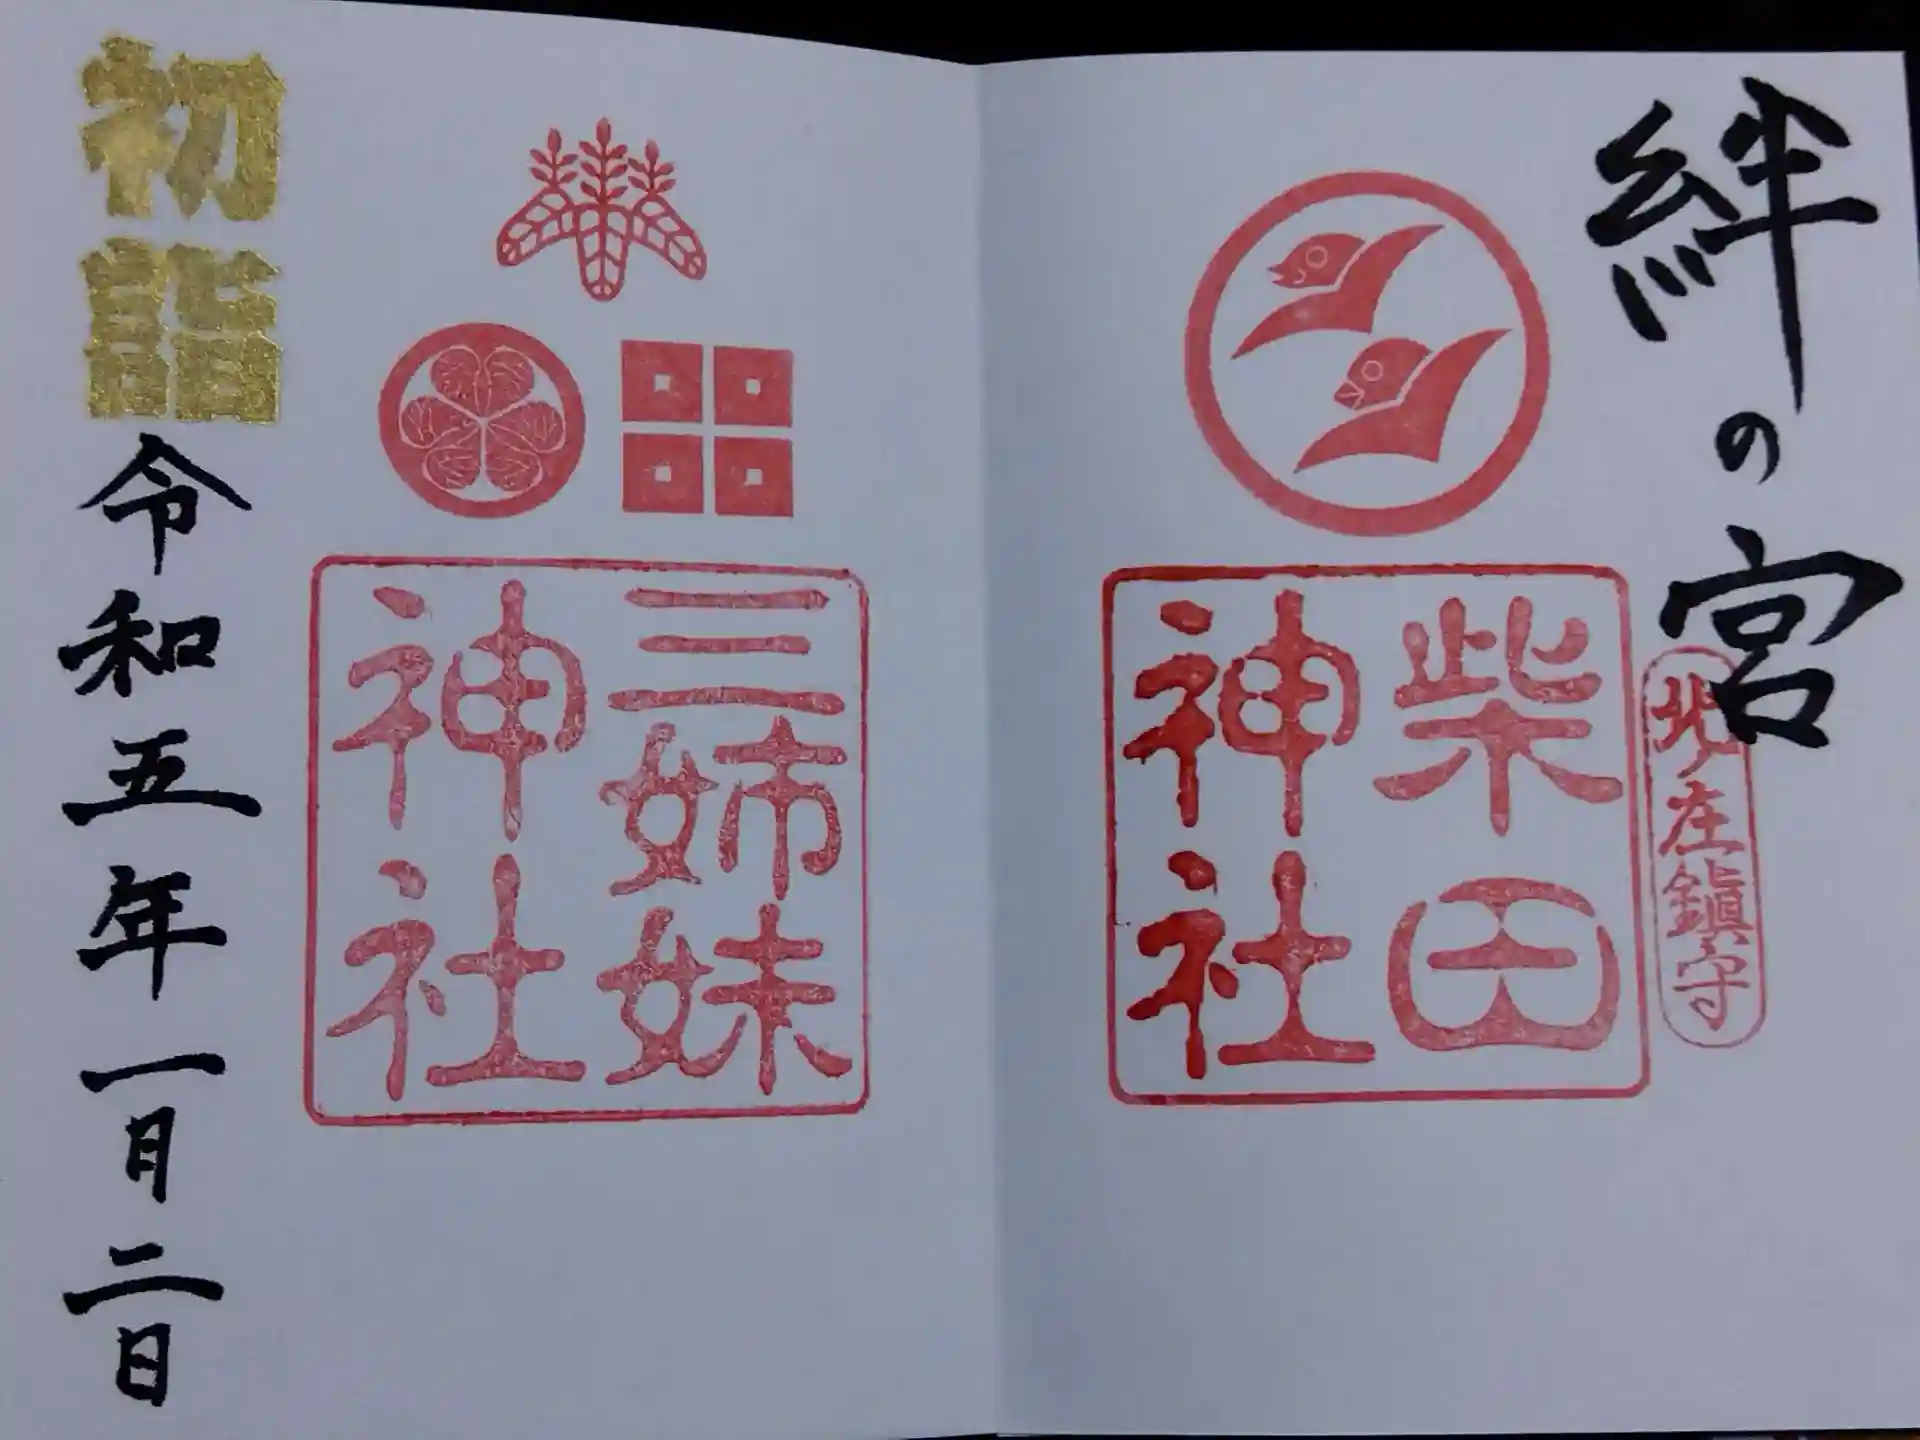 絆の宮
北ノ庄鎮守
柴田
神社
三姉妹
神社
初詣
令和五年一月二日